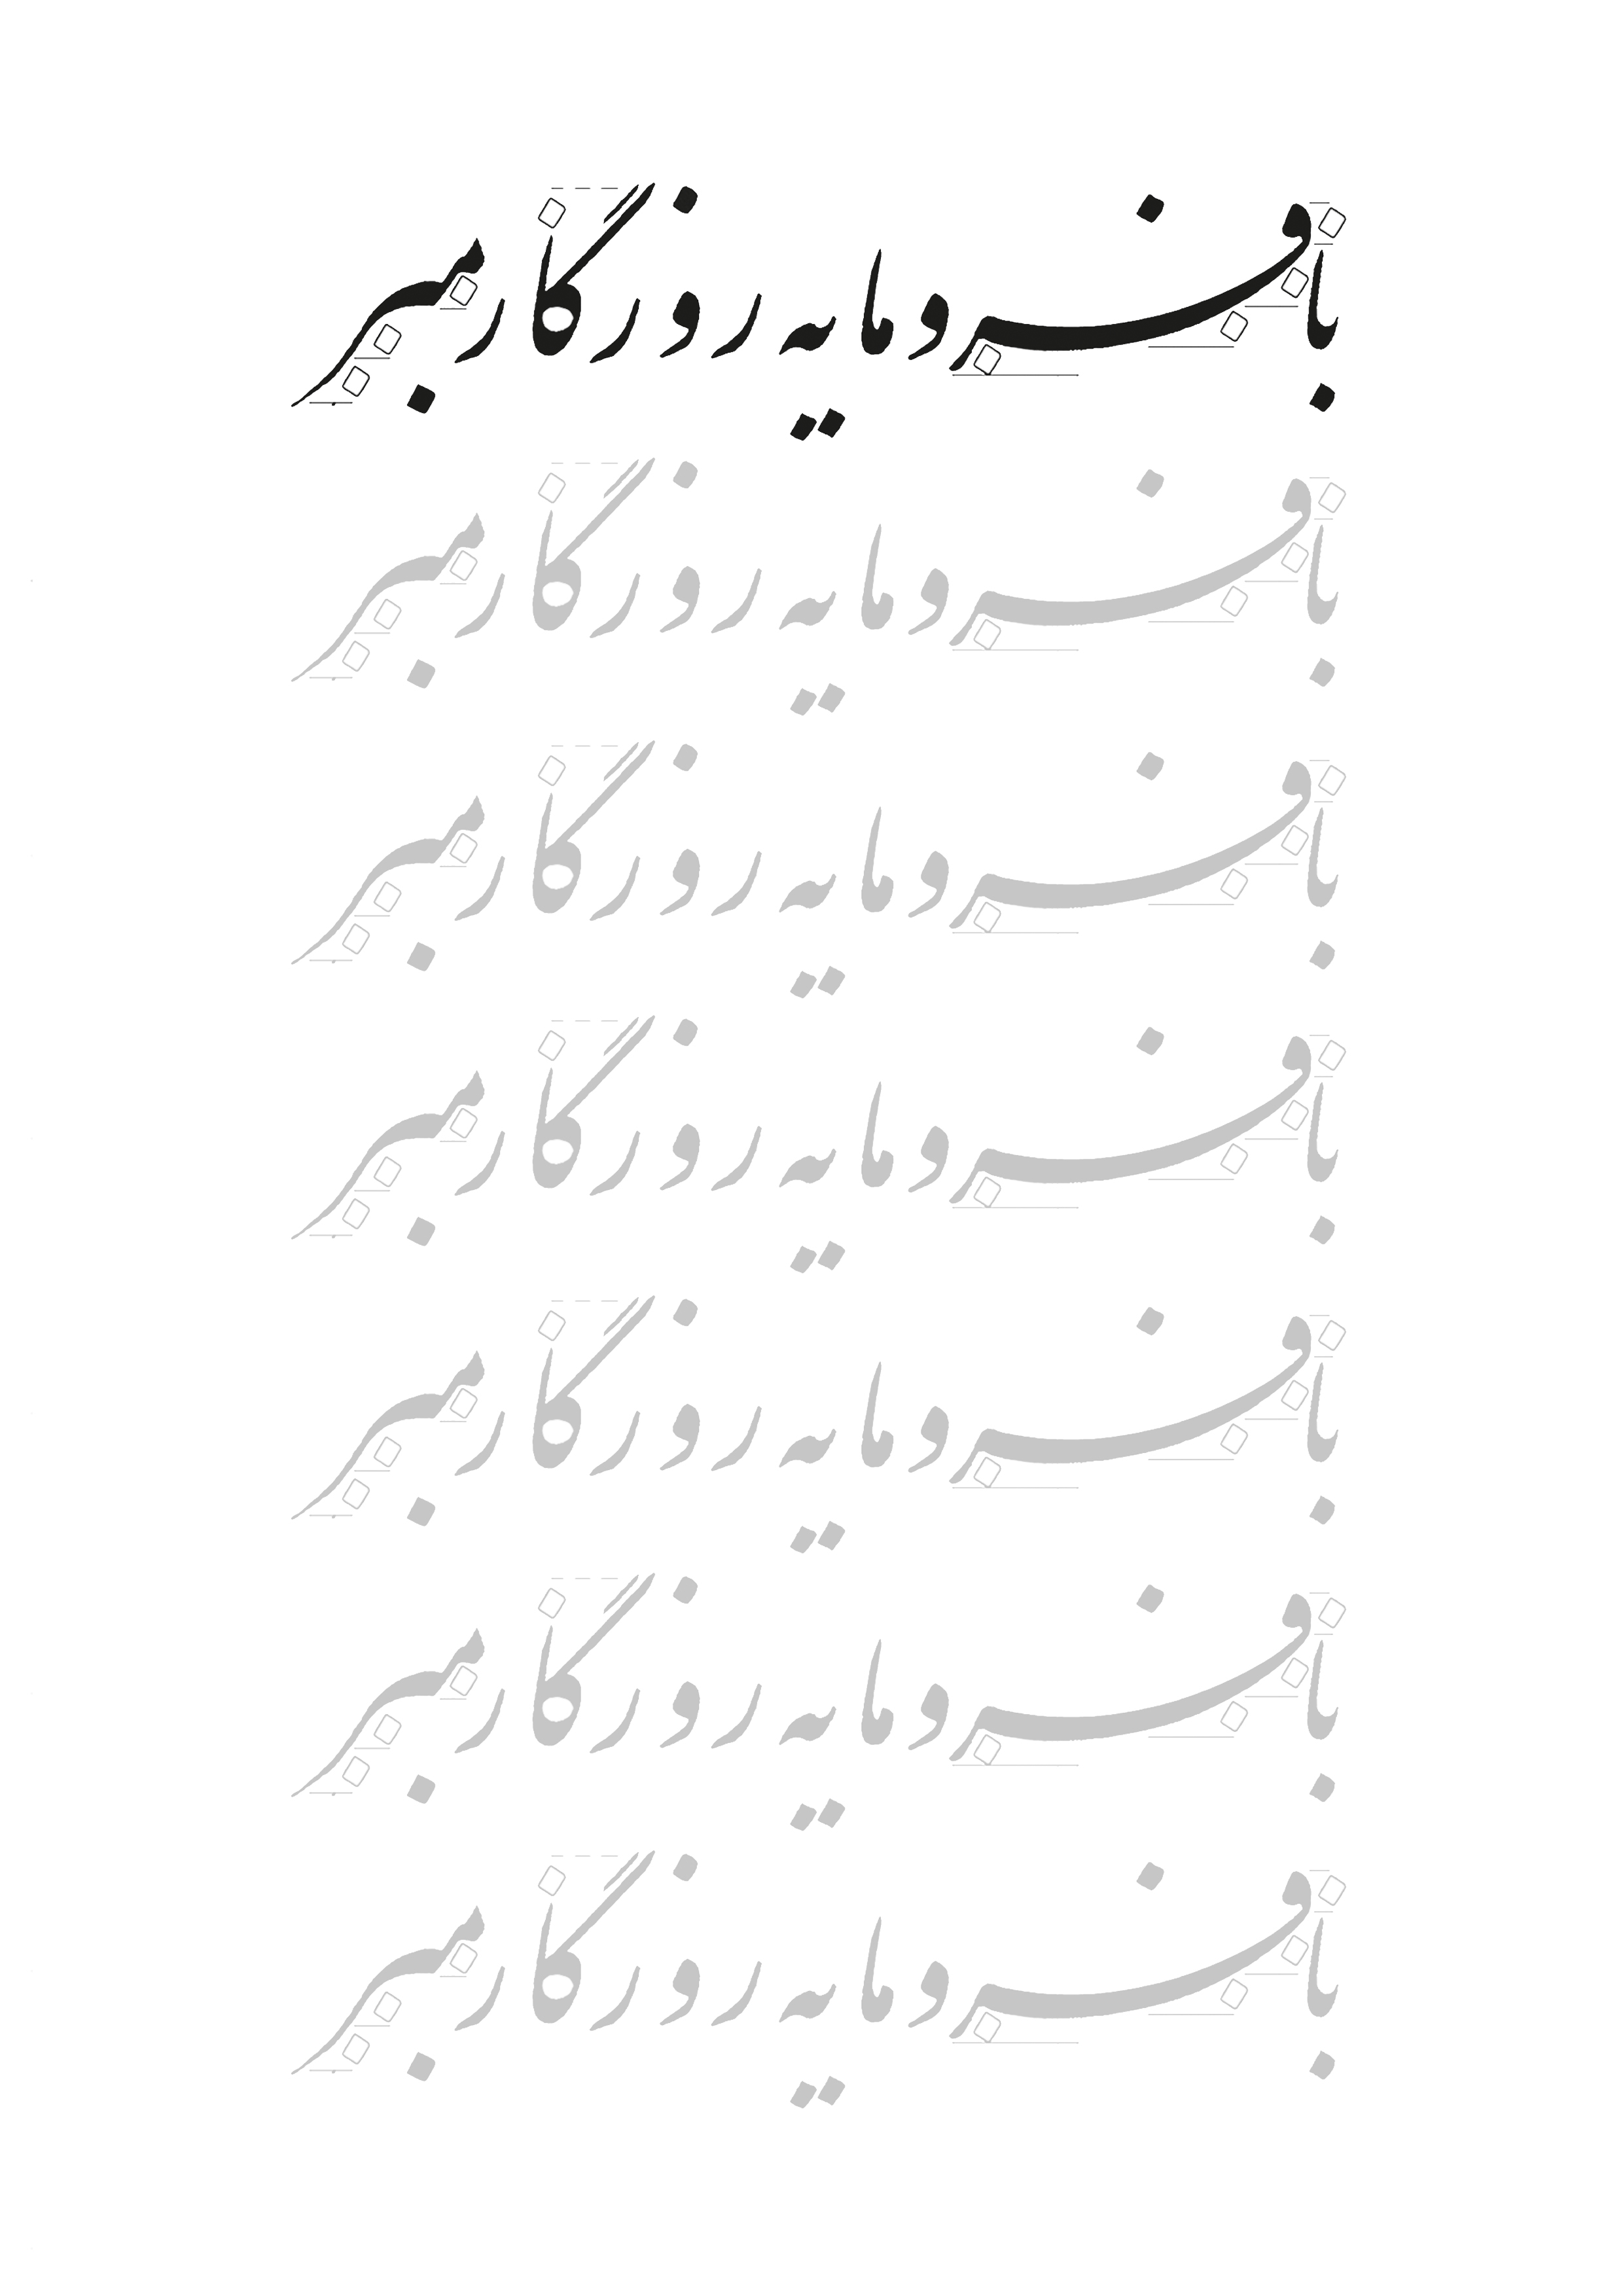 با فرومایه روزگار مبر
با فرومایه روزگار مبر
با فرومایه روزگار مبر
با فرومایه روزگار مبر
با فرومایه روزگار مبر
با فرومایه روزگار مبر
با فرومایه روزگار مبر